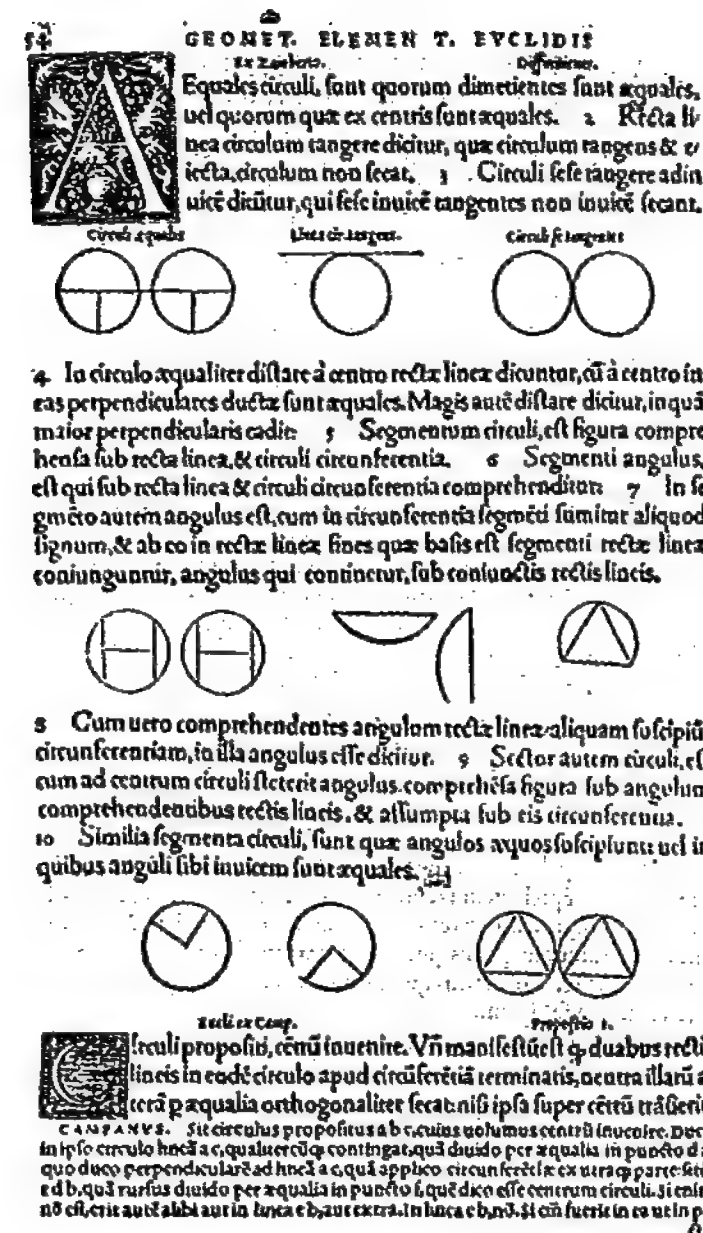 54
GEOMET. ELEMEN T. EVCLIDIS
Ex Definitiones.
AEquales circuli, sunt quorum dimetientes sunt æquales,
uel quorum quæ ex centris sunt æquales. 2 Recta li
nea circulum tangere dicitur, quæ circulum tangens & e
iecta, circulum non secat. 3 Circuli sese tangere adin
uicē dicūtur, qui sese inuicē tangentes non inuicē secant.
Circuli æquales Linea cir. tangens. Circuli se tangentes
4 In circulo æqualiter distare à centro rectæ lineæ dicuntur, cū à centro in
eas perpendiculares ductæ sunt æquales. Magis autē distare dicitur, in quā
maior perpendicularis cadit. 5 Segmentum circuli, est figura compre
hensa sub recta linea, & circuli circunferentia. 6 Segmenti angulus,
est qui sub recta linea & circuli circunferentia comprehenditur. 7 In se
gmēto autem angulus est, cum in circunferentia segmēti sumitur aliquod
signum, & ab eo in rectæ lineæ fines quæ basis est segmenti rectæ lineæ
coniunguntur, angulus qui continetur, sub coniunctis rectis lineis.
8 Cum uero comprehendentes angulum rectæ lineæ aliquam suscipiūt
circunferentiam, in illa angulus esse dicitur. 9 Sector autem circuli, est
cum ad centrum circuli steterit angulus, comprehēsa figura sub angulum
comprehendentibus rectis lineis, & assumpta sub eis circunferentia.
10 Similia segmenta circuli, sunt quæ angulos æquos suscipiunt: uel in
quibus anguli sibi inuicem sunt æquales.
Eucli ex Camp. Propositio 1.
Circuli propositi, cētrū inuenire. Vn̄ manifestū est ꝙ duabus recti
lineis in eodē circulo apud circūferētiā terminatis, neutra illarū a
terā p æqualia orthogonaliter secat: nisi ipsa super cētrū trāsieri
CAMPANVS. Sit circulus propositus a b c, cuius uolumus centrū inuenire. Duc
in ipso circulo lineā a c, qualitercūq; contingat, quā diuido per æqualia in puncto d a
quo duco perpendicularē ad lineā a c, quā applico circunferētiæ ex utraq; parte: sit
e d b, quā rursus diuido per æqualia in puncto f, quē dico esse centrum circuli. Si enim
nō est, erit autē alibi aut in linea e b, aut extra. In linea e b, nō. Si em̄ fuerit in ea ut in p